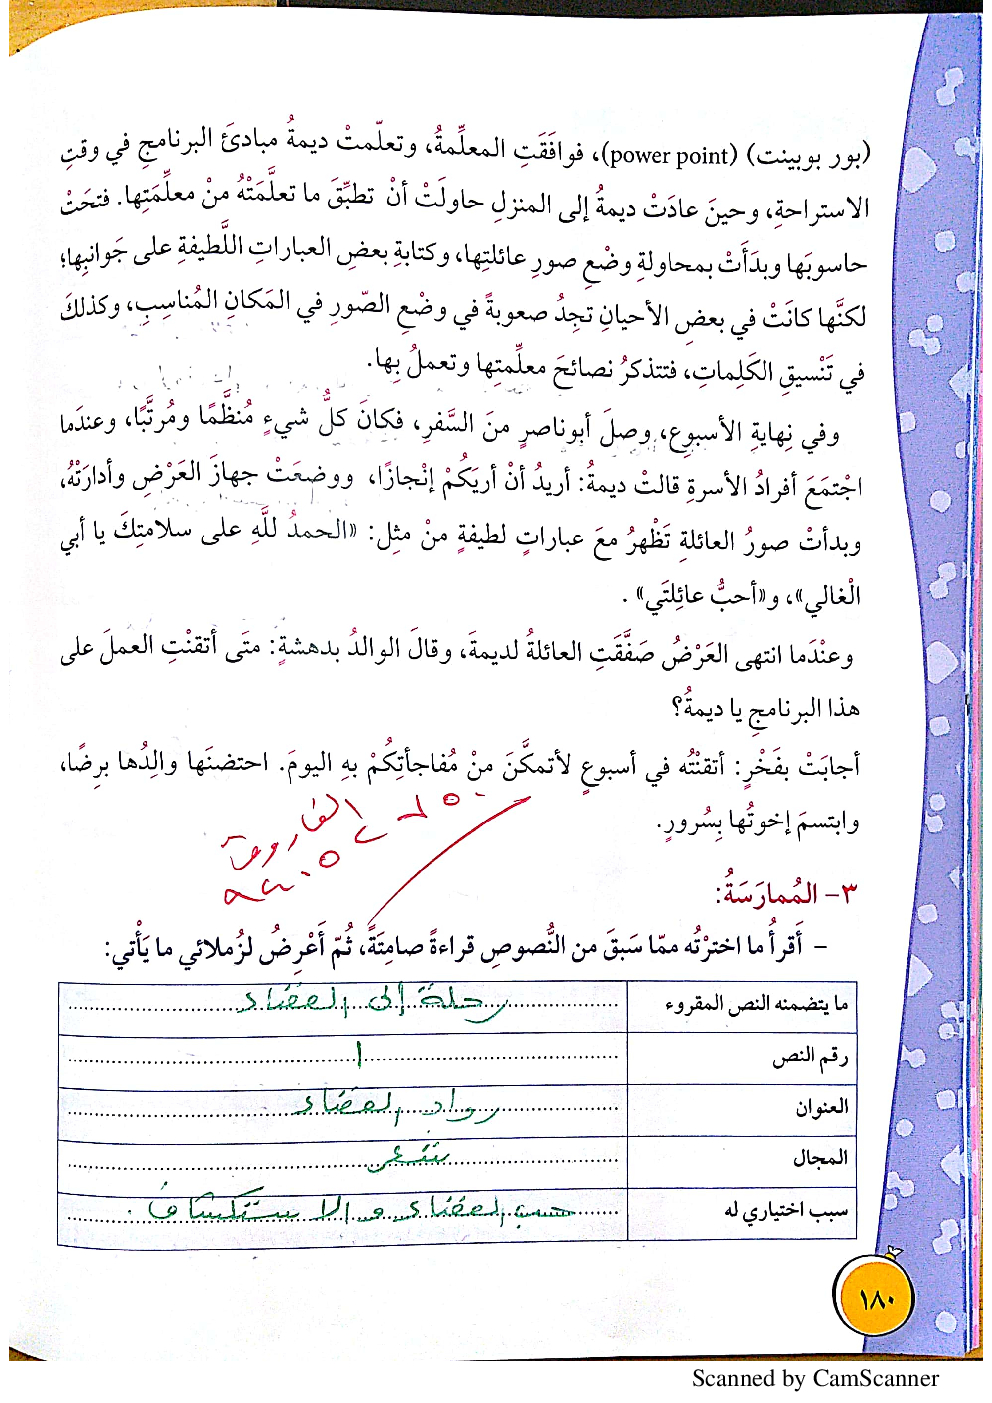 (بور بوبينت) (power point)، فوافَقَتِ المعلِّمةُ، وتعلّمتْ ديمةُ مبادئَ البرنامجِ في وقتِ
الاستراحةِ، وحينَ عادَتْ ديمةُ إلى المنزلِ حاولَتْ أنْ تطبِّقَ ما تعلَّمَتْهُ منْ معلِّمَتِها. فتحَتْ
حاسوبَها وبدَأَتْ بمحاولةِ وضْعِ صورِ عائلتِها، وكتابةِ بعضِ العباراتِ اللَّطيفةِ على جَوانبِها؛
لكنَّها كانَتْ في بعضِ الأحيانِ تجدُ صعوبةً في وضْعِ الصّورِ في المَكانِ المُناسبِ، وكذلكَ
في تَنْسيقِ الكَلِماتِ، فتتذكرُ نصائحَ معلِّمتِها وتعملُ بِها.
وفي نِهايةِ الأسبوعِ، وصلَ أبوناصرٍ منَ السَّفرِ، فكانَ كلُّ شيءٍ مُنظَّمًا ومُرتَّبًا، وعندَما
اجْتمَعَ أفرادُ الأسرةِ قالتْ ديمةُ: أريدُ أنْ أريَكُمْ إنْجازًا، ووضعَتْ جهازَ العَرْضِ وأدارَتْهُ،
وبدأتْ صورُ العائلةِ تَظْهرُ معَ عباراتٍ لطيفةٍ منْ مثِل: «الحمدُ للَّهِ على سلامتِكَ يا أبي
الْغالي»، و«أحبُّ عائِلتَي» .
وعنْدَما انتهى العَرْضُ صَفَّقَتِ العائلةُ لديمةَ، وقالَ الوالدُ بدهشةٍ: متَى أتقنْتِ العملَ على
هذا البرنامجِ يا ديمةُ؟
أجابَتْ بفَخْرٍ: أتقنْتُه في أسبوعٍ لأتمكَّنَ منْ مُفاجأتِكُمْ بهِ اليومَ. احتضنَها والدُها برِضًا،
وابتسمَ إخوتُها بِسُرورٍ.
٣- المُمارَسَةُ:
- أَقرأُ ما اخترْتُه ممّا سَبقَ من النُّصوصِ قراءةً صامِتَةً، ثُمّ أَعْرِضُ لزُملائي ما يَأْتي:
ما يتضمنه النص المقروء رحلة إلى الفضاء
رقم النص ١
العنوان رواد الفضاء
المجال
سبب اختياري له حب الفضاء والاستكشاف.
١٨٠
Scanned by CamScanner